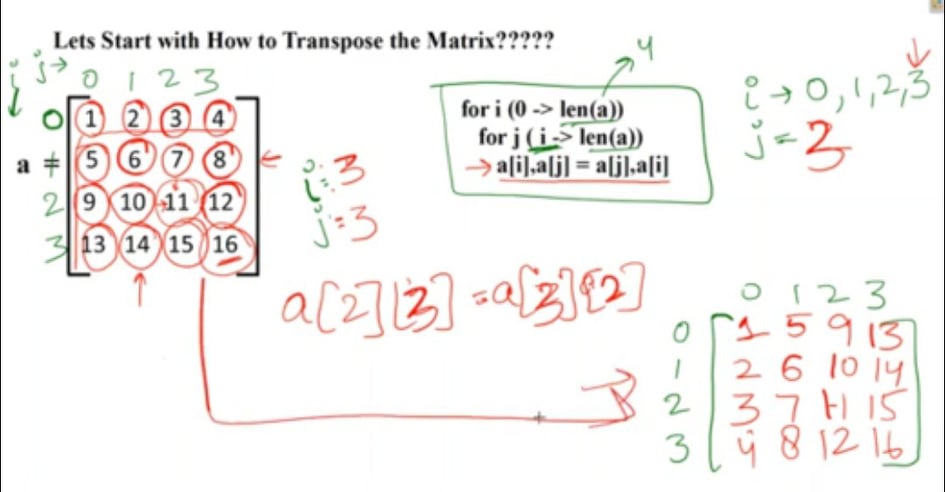 Lets Start with How to Transpose the Matrix?????
4
i j→ 0 1 2 3
0 1 2 3 4
a = 5 6 7 8
2 9 10 11 12
3 13 14 15 16
for i (0 -> len(a))
for j ( i -> len(a))
→ a[i],a[j] = a[j],a[i]
i → 0, 1, 2, 3
j = 3
i = 3
j = 3
a[2][3] = a[3][2]
0 1 2 3
0 1 5 9 13
1 2 6 10 14
2 3 7 11 15
3 4 8 12 16